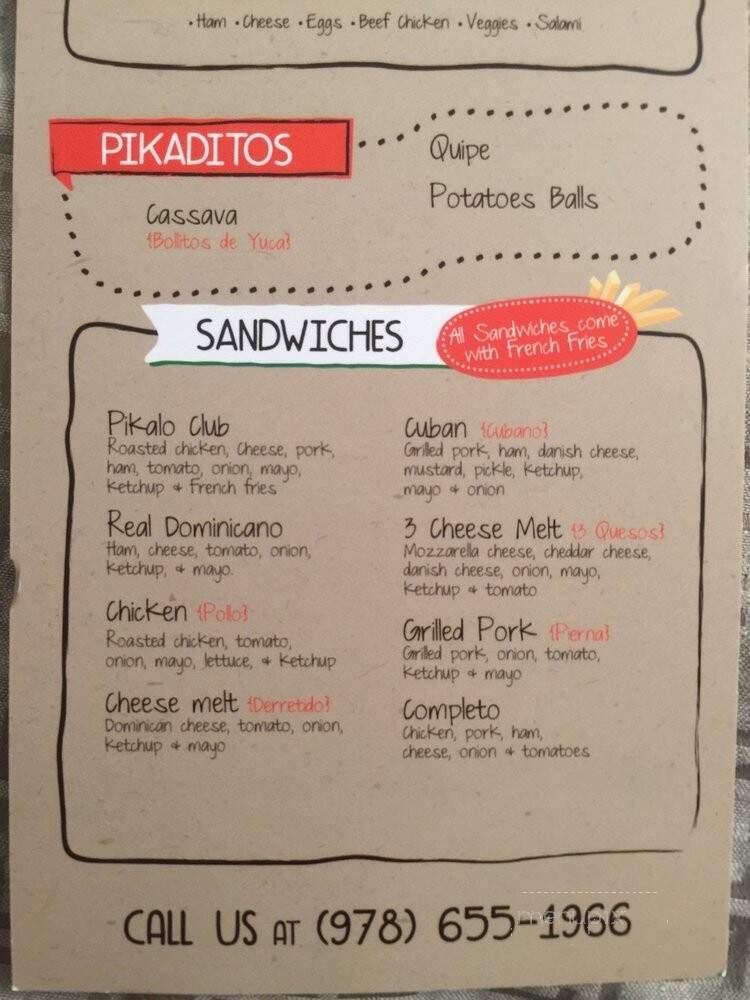 •Ham •Cheese •Eggs •Beef Chicken •Veggies •Salami
PIKADITOS
Cassava
{Bollitos de Yuca}
Quipe
Potatoes Balls
SANDWICHES
All Sandwiches come
with French Fries
Pikalo Club
Roasted chicken, Cheese, pork,
ham, tomato, onion, mayo,
ketchup & French fries
Real Dominicano
Ham, cheese, tomato, onion,
ketchup, & mayo.
Chicken {Pollo}
Roasted chicken, tomato,
onion, mayo, lettuce, & ketchup
Cheese melt {Derretido}
Dominican cheese, tomato, onion,
ketchup & mayo
Cuban {Cubano}
Grilled pork, ham, danish cheese,
mustard, pickle, ketchup,
mayo & onion
3 Cheese Melt {3 Quesos}
Mozzarella cheese, cheddar cheese,
danish cheese, onion, mayo,
ketchup & tomato
Grilled Pork {Pierna}
Grilled pork, onion, tomato,
ketchup & mayo
Completo
Chicken, pork, ham,
cheese, onion & tomatoes
CALL US AT (978) 655-1966